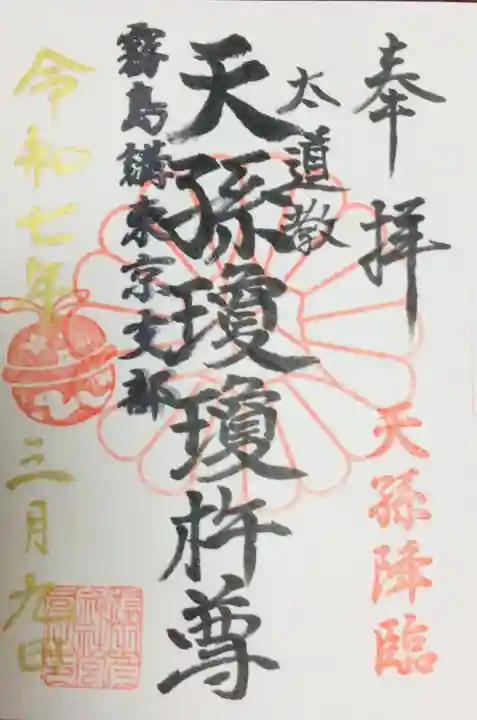 奉拝
天孫降臨
太道教
天孫瓊瓊杵尊
霧島講東京支部
令和七年 三月九日